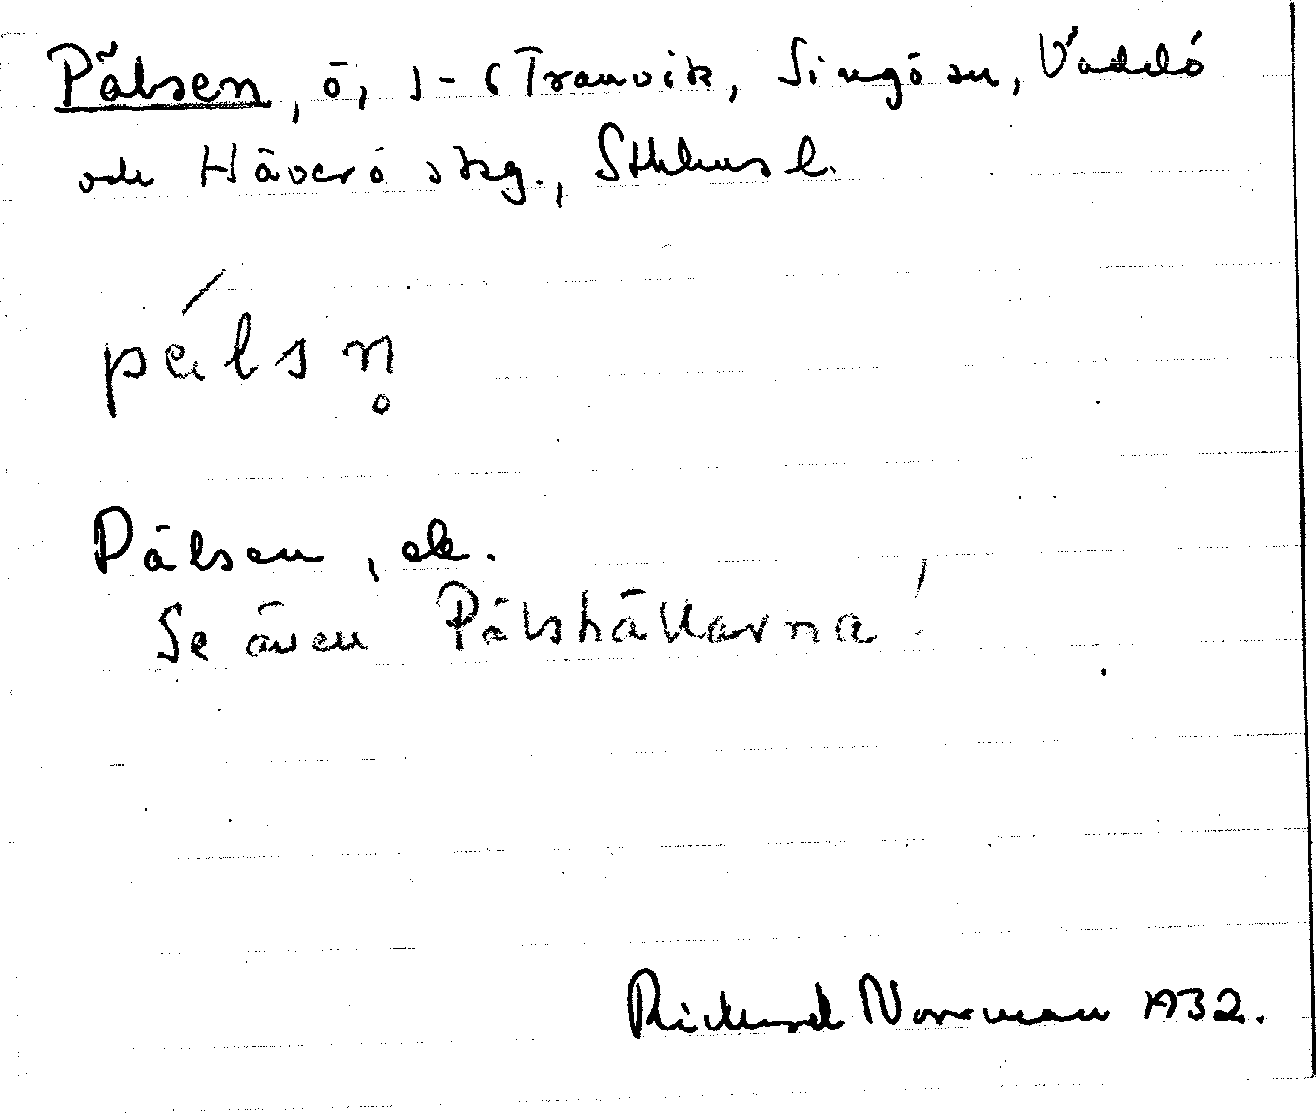 Pålsen, ö, 1-6 Tranvik, Singö sn, Väddö
och Häverö skg., Sthlms l.
pálsn̥
Pålsen, ek.
Se även Pålshällarna!
Richard Norrman 1932.